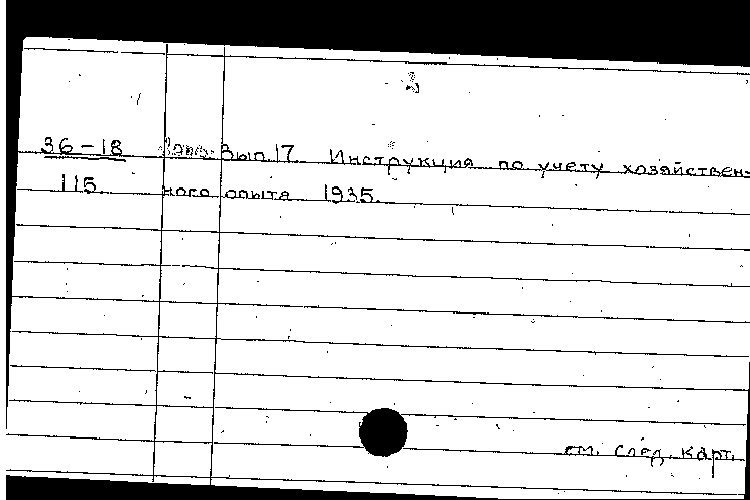 3
36-18 Вып. 17 Инструкция по учету хозяйствен-
115. ного опыта 1935.
см. след. карт.